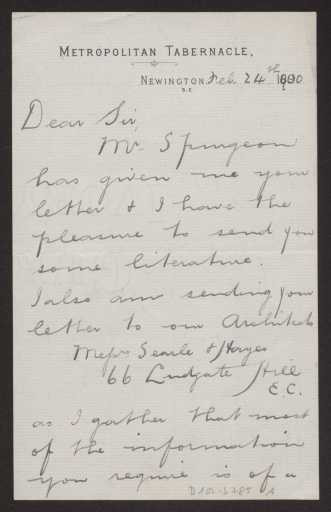 METROPOLITAN TABERNACLE,
NEWINGTON, Feb. 24th 1900
S.E.
Dear Sir,
Mr. Spurgeon
has given me your
letter & I have the
pleasure to send you
some literature.
I also am sending your
letter to our Architects
Messrs Searle & Hayes
66 Ludgate Hill
E.C.
as I gather that most
of the information
you require is of a